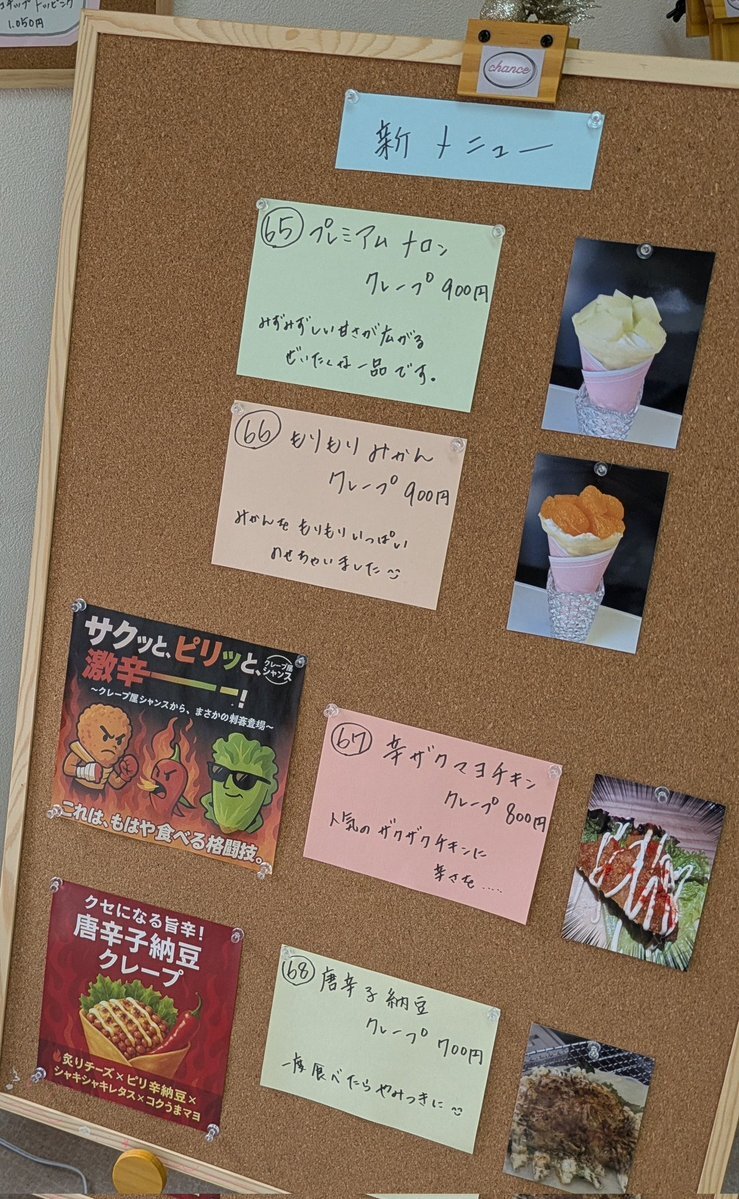 チョップトッピング
1.050円
chance
新メニュー
65 プレミアムメロン
クレープ 900円
みずみずしい甘さが広がる
ぜいたくな一品です。
66 もりもりみかん
クレープ 900円
みかんをもりもりいっぱい
のせちゃいました
サクッと、ピリッと、
激辛ーーー!
クレープ屋
シャンス
〜クレープ屋シャンスから、まさかの刺客登場〜
これは、もはや食べる格闘技。
67 辛ザクマヨチキン
クレープ 800円
人気のザクザクチキンに
辛さを……
クセになる旨辛!
唐辛子納豆
クレープ
炙りチーズ×ピリ辛納豆×
シャキシャキレタス×コクうまマヨ
68 唐辛子納豆
クレープ 700円
一度食べたらやみつきに